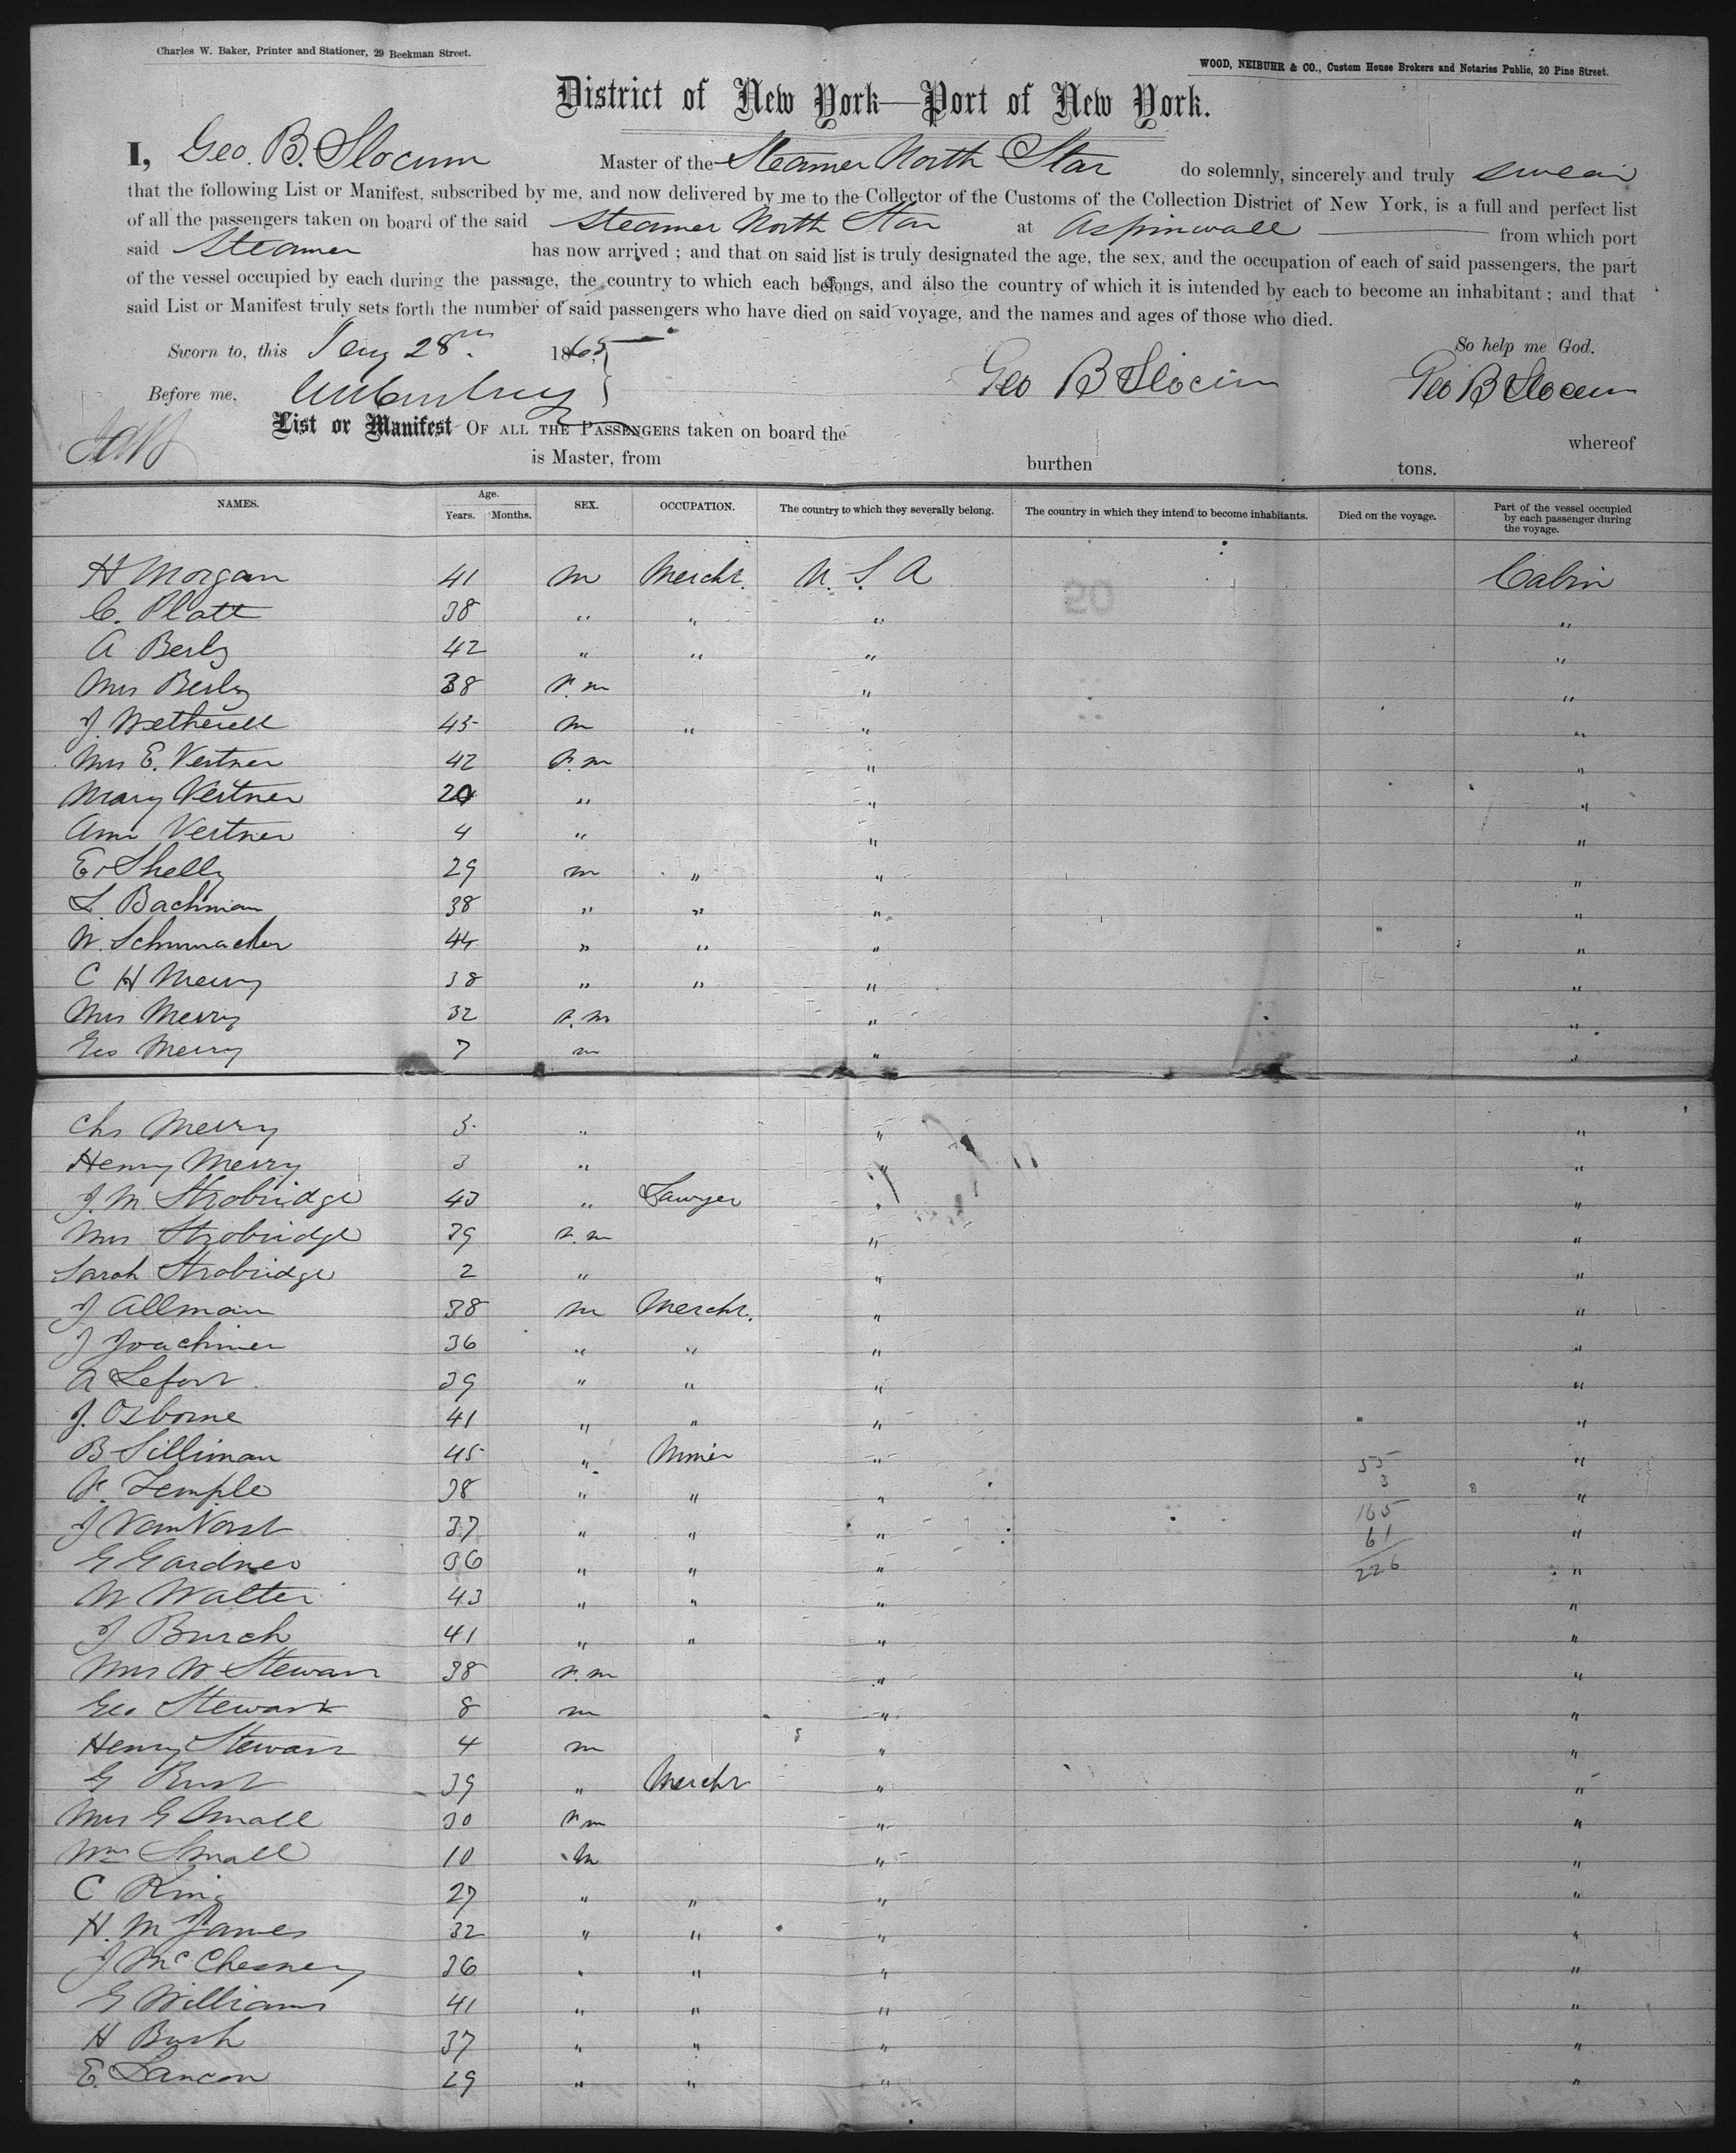 Charles W. Baker, Printer and Stationer, 29 Beekman Street.
WOOD, NEIBUHR & CO., Custom House Brokers and Notaries Public, 20 Pine Street.
District of New York—Port of New York.
I, Geo. B. Slocum Master of the Steamer North Star do solemnly, sincerely and truly swear
that the following List or Manifest, subscribed by me, and now delivered by me to the Collector of the Customs of the Collection District of New York, is a full and perfect list
of all the passengers taken on board of the said Steamer North Star at Aspinwall from which port
said Steamer has now arrived; and that on said list is truly designated the age, the sex, and the occupation of each of said passengers, the part
of the vessel occupied by each during the passage, the country to which each belongs, and also the country of which it is intended by each to become an inhabitant; and that
said List or Manifest truly sets forth the number of said passengers who have died on said voyage, and the names and ages of those who died.
Sworn to, this 28th 1865 So help me God.
Before me, Geo B Slocum Geo B Slocum
List or Manifest OF ALL THE PASSENGERS taken on board the whereof
is Master, from burthen tons.
NAMES. Age. Years. Months. SEX. OCCUPATION. The country to which they severally belong. The country in which they intend to become inhabitants. Died on the voyage. Part of the vessel occupied by each passenger during the voyage.
H Morgan 41 m Mercht. U. S. A Cabin
C. Platt 38 " " " "
A Berly 42 " " " "
Mrs Berly 38 F.m " "
J. Wetherell 45 m " " "
Mrs E. Vertner 42 F.m " "
Mary Vertner 20 " " "
Ann Vertner 4 " " "
E. Shelly 29 m " " "
L. Bachman 38 " " " "
W. Schumacher 44 " " " "
C H Merry 38 " " " "
Mrs Merry 32 F.m " "
Geo Merry 7 m " "
Chs Merry 5 " " "
Henry Merry 3 " " "
J. M. Strobridge 43 " Lawyer " "
Mrs Strobridge 39 F.m " "
Sarah Strobridge 2 " " "
J Allman 38 m Mercht. " "
J Joachimer 36 " " " "
A Lefort 39 " " " "
J. Osborne 41 " " " "
B Silliman 45 " Miner " 55 "
F. Temple 38 " " " 3 "
J Van Vorst 37 " " " 165 "
G Gardner 36 " " " 61 226 "
W Walter 43 " " " "
J Burch 41 " " " "
Mrs W Stewart 38 F.m " "
Geo Stewart 8 m " "
Henry Stewart 4 m " "
G Rust 39 " Mercht " "
Mrs G Small 30 F.m " "
Wm Small 10 m " "
C King 27 " " " "
H. M James 32 " " " "
J McChesney 36 " " " "
G Williams 41 " " " "
H Bush 37 " " " "
E. Lancon 29 " " " "